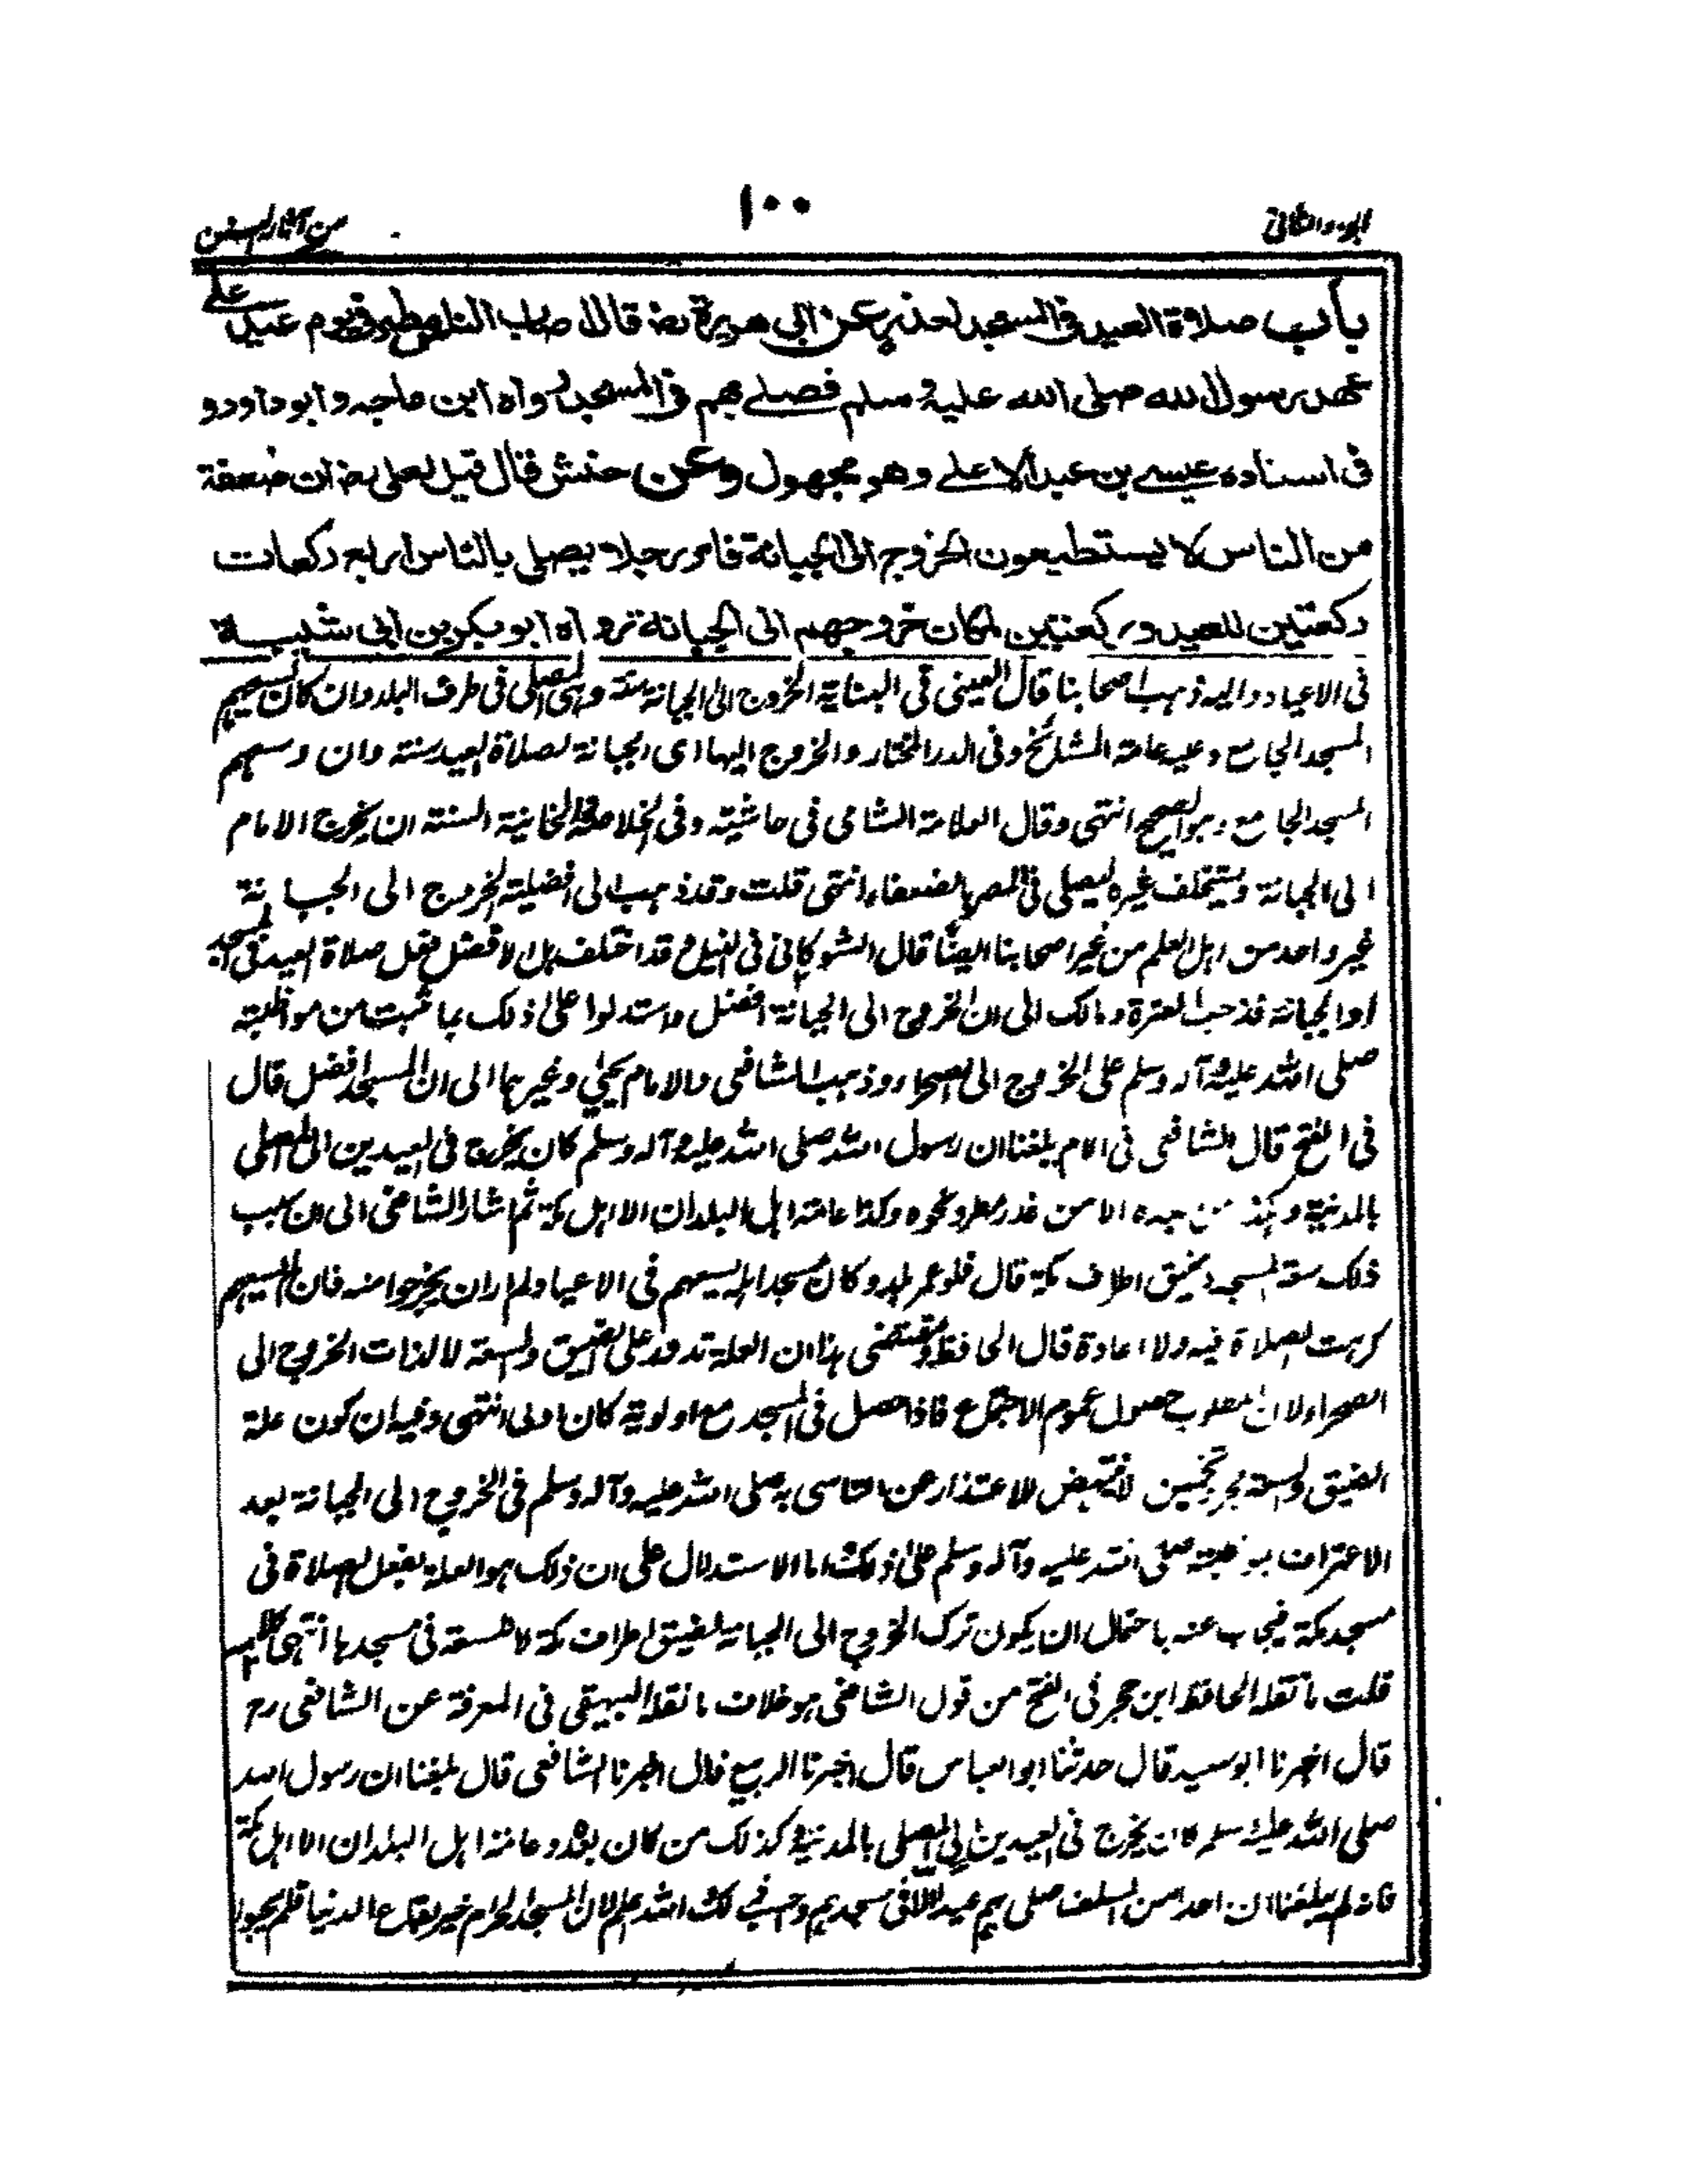 الجزء الثانى
١٠٠
من آثار السنن
باب صلاة العيد فى المسجد لعذر عن ابى هريرة رض قال اصاب الناس مطر فى يوم عيد على
عهد رسول الله صلى الله عليه وسلم فصلے بهم فى المسجد رواه ابن ماجه وابوداود و
فى اسناده عيسے بن عبد الاعلے وهو مجهول وعن حنش قال قيل لعلى رض ان ضعفة
من الناس لا يستطيعون الخروج الى الجبانة فامر رجلا يصلى بالناس اربع ركعات
ركعتين للعيد وركعتين لمكان خروجهم الى الجبانة رواه ابو بكر بن ابى شيبة
فى الاعياد واليه ذهب اصحابنا قال العينى فى البناية الخروج الى الجبانة سنة وهى المصلى فى طرف البلد وان كان يسعهم
المسجد الجامع وعليه عامة المشائخ وفى الدر المختار والخروج اليها اى الجبانة لصلاة العيد سنة وان وسعهم
المسجد الجامع وهو الصحيح انتهى وقال العلامة الشامى فى حاشيته وفى الخلاصة والخانية السنة ان يخرج الامام
الى الجبانة ويستخلف غيره ليصلى فى المصر بالضعفاء انتهى قلت وقد ذهب الى افضلية الخروج الى الجبانة
غير واحد من اهل العلم من غير اصحابنا ايضًا قال الشوكانى فى النيل وقد اختلف هل الافضل فعل صلاة العيد فى المسجد
او الجبانة فذهب العترة ومالك الى ان الخروج الى الجبانة افضل واستدلوا على ذلك بما ثبت من مواظبته
صلى الله عليه وآله وسلم على الخروج الى الصحراء وذهب الشافعى والامام يحيى وغيرهما الى ان المسجد افضل قال
فى الفتح قال الشافعى فى الام بلغنا ان رسول الله صلى الله عليه وآله وسلم كان يخرج فى العيدين الى المصلى
بالمدينة وهكذا من بعده الا من عذر مطر ونحوه وكذا عامة اهل البلدان الا اهل مكة ثم اشار الشافعى الى ان سبب
ذلك سعة المسجد وضيق اطراف مكة قال فلو عمر بلد وكان مسجد اهله يسعهم فى الاعياد لم ار ان يخرجوا منه فان لم يسعهم
كرهت الصلاة فيه ولا اعادة قال الحافظ ومقتضى هذا ان العلة تدور على الضيق والسعة لا لذات الخروج الى
الصحراء لان المطلوب حصول عموم الاجتماع فاذا حصل فى المسجد مع اولويته كان اولى انتهى وفيه ان كون علة
الضيق والسعة مجرد تخمين لا ينتهض للاعتذار عن التاسى به صلى الله عليه وآله وسلم فى الخروج الى الجبانة بعد
الاعتراف بمواظبته صلى الله عليه وآله وسلم على ذلك واما الاستدلال على ان ذلك هو العلة بفعل الصلاة فى
مسجد مكة فيجاب عنه باحتمال ان يكون ترك الخروج الى الجبانة لضيق اطراف مكة لا للسعة فى مسجدها انتهى كلامه
قلت ما نقله الحافظ ابن حجر فى الفتح من قول الشافعى هو خلاف ما نقله البيهقى فى المعرفة عن الشافعى رح
قال اخبرنا ابو سعيد قال حدثنا ابو العباس قال اخبرنا الربيع قال اخبرنا الشافعى قال بلغنا ان رسول الله
صلى الله عليه وسلم كان يخرج فى العيدين الى المصلى بالمدينة وكذلك من كان بعده وعامة اهل البلدان الا اهل مكة
فانه لم يبلغنا ان احدا من السلف صلى بهم عيدا الا فى مسجدهم واحسب ذلك والله اعلم لان المسجد الحرام خير بقاع الدنيا فلم يحبوا